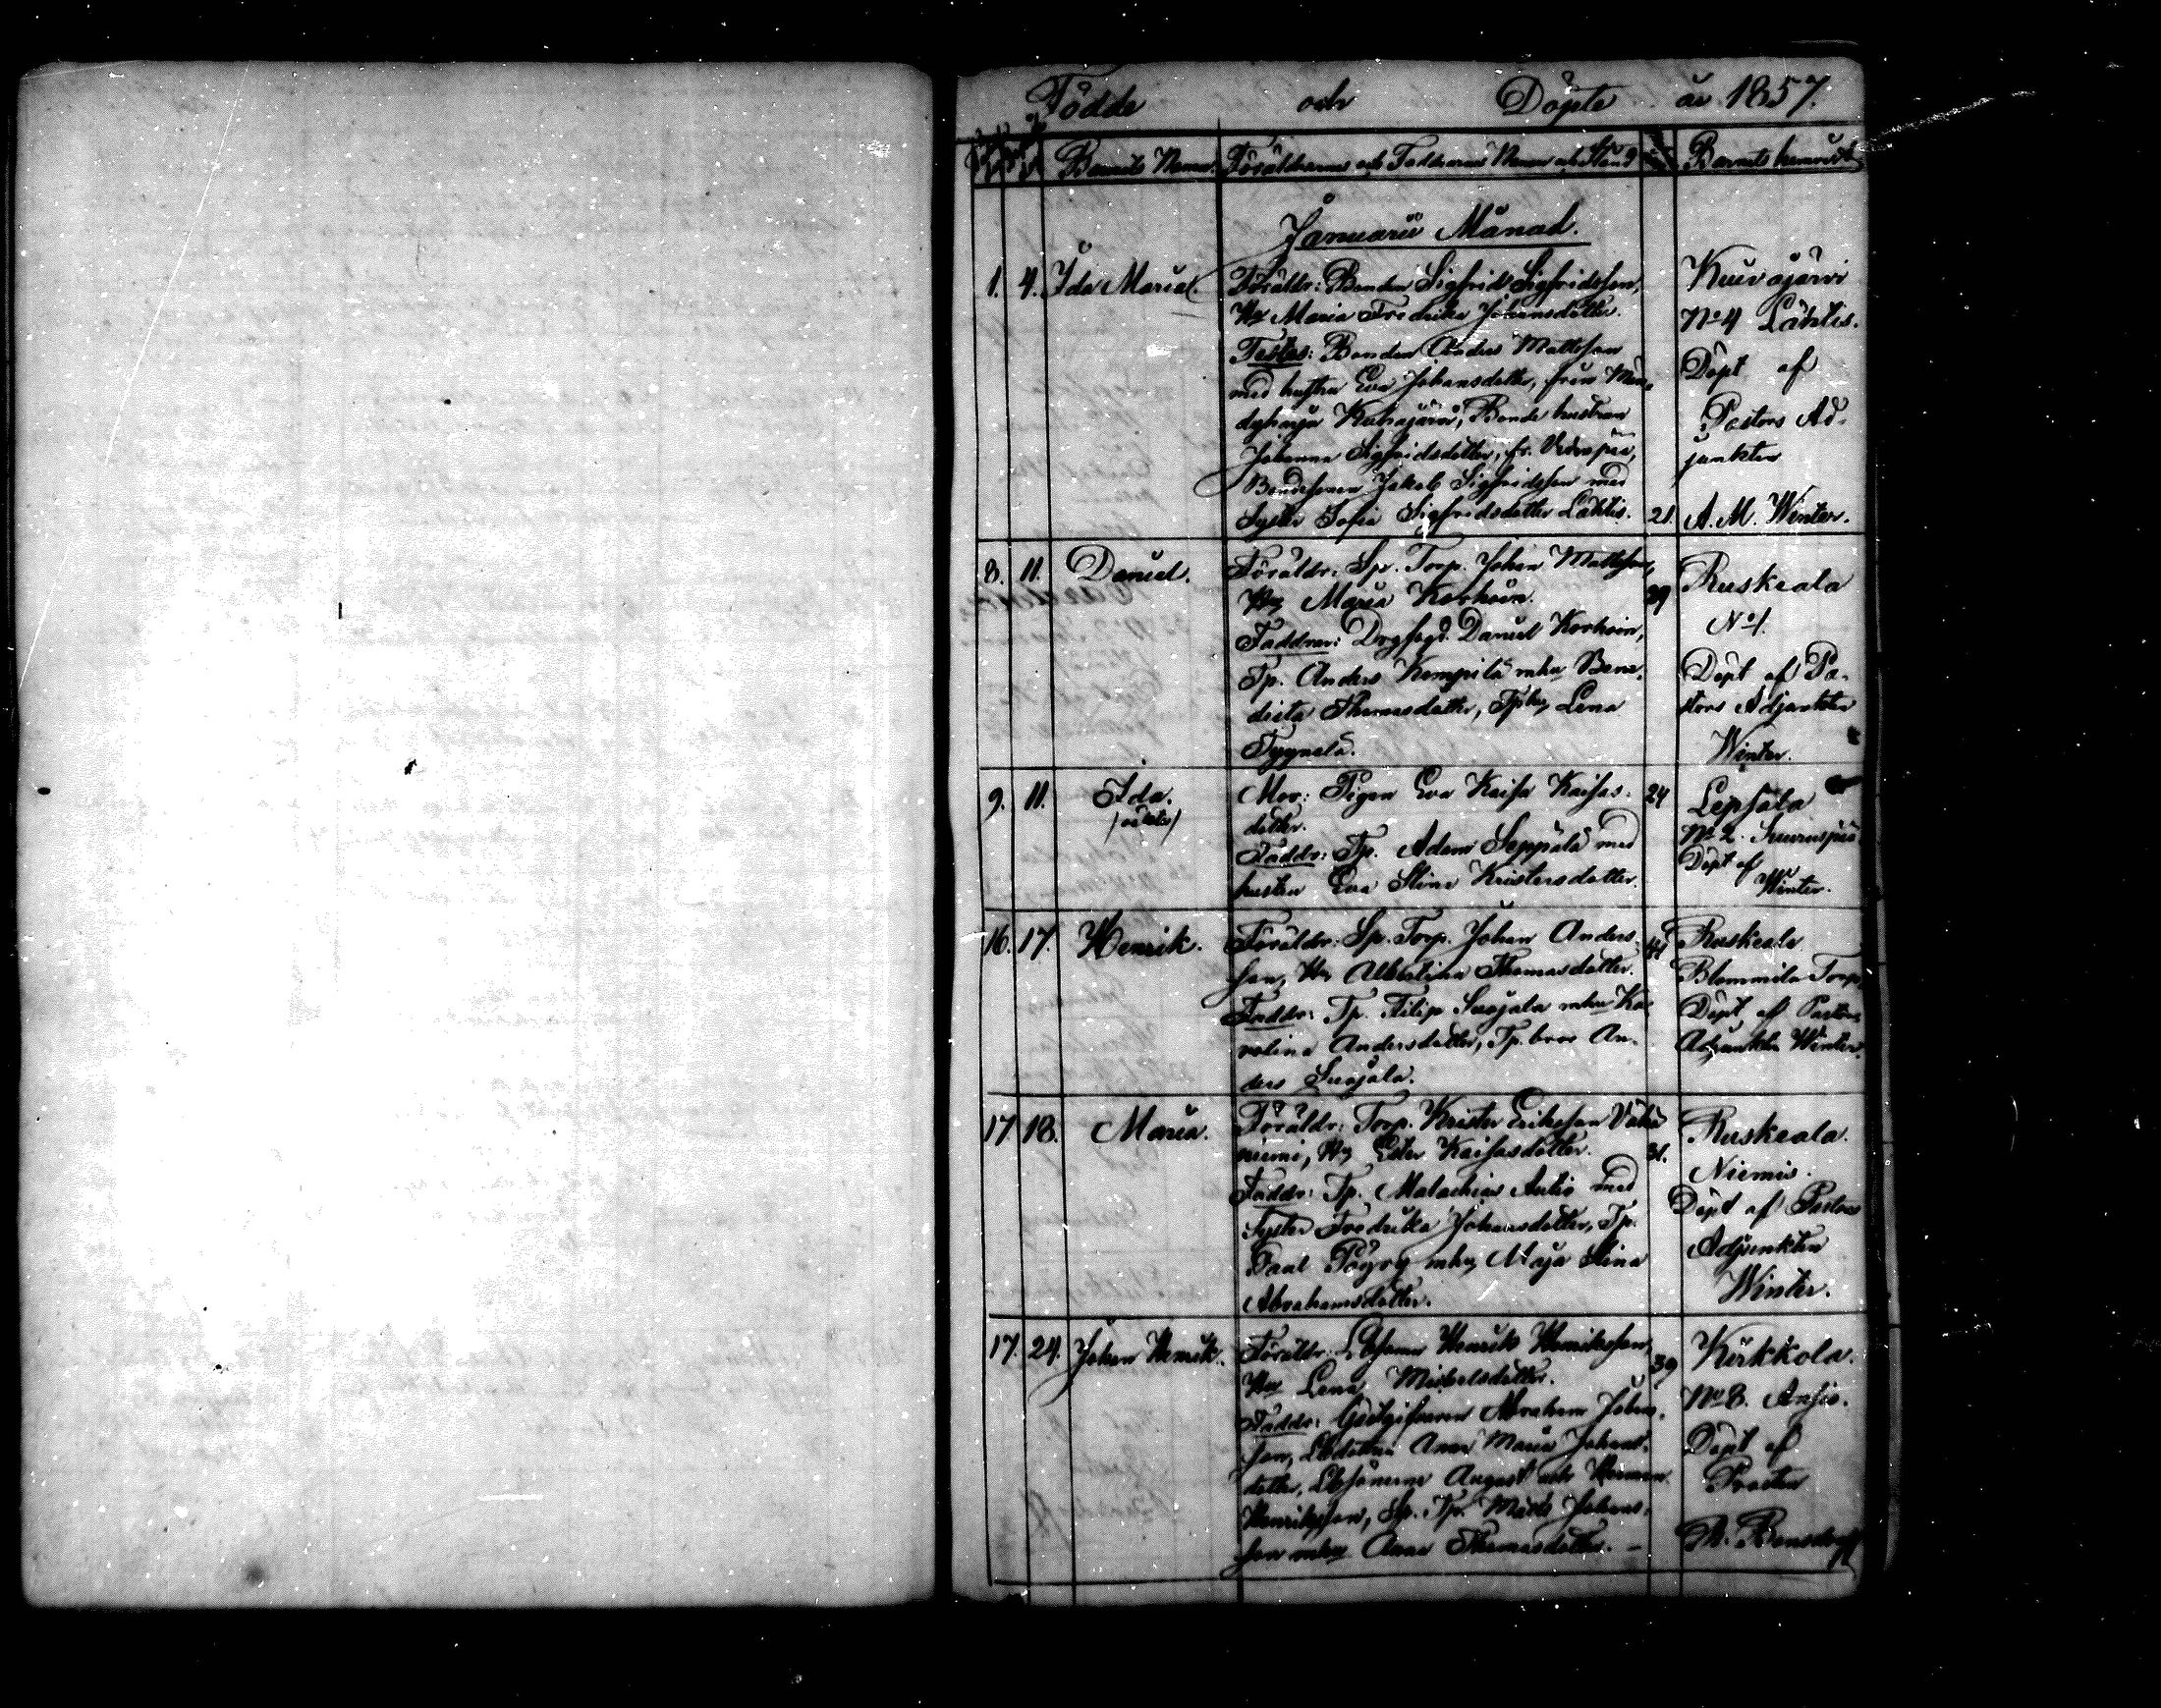 Födde och Döpte år 1857.
Barnets Namn. Föräldrarnes och Faddrarnes Namn och Stånd Barnets hemvist
Januarii Månad.
1. 4. Ida Maria.
Föräldr: Bonden Sigfrid Sigfridsson,
Hu Maria Fredrika Johansdotter.
Testes: Bonden Anders Mattsson
med hustru Eva Johansdotter, från
Kuhajärvi, Bonde hustrun
Johanna Sigfridsdotter, fr.
Bondesonen Jakob Sigfridsson med
Syster Sofia Sigfridsdotter Lahtis.
21.
Kuivajärvi
No 4 Lahtis.
Döpt af
Pastors Ad-
junkten
A. M. Winter.
8. 11. Daniel.
Föräldr: Sp. Torp. Johan Mattsson,
Hu Maria Korhoin.
Faddrar: Daniel Korhoin,
Tp. Anders Kempilä mhu Bene-
dicta Thomasdotter, Tphu Lena
39
Ruskeala
No 1.
Döpt af Pa-
stors Adjunkten
Winter.
9. 11. Ida.
(oäkta)
Mor: Pigan Eva Kaisa Kaisas-
dotter.
Faddr: Tp. Adam Seppälä med
hustru Eva Stina Kristersdotter.
24
No 2.
Döpt af
Winter.
16. 17. Henrik.
Föräldr: Sp. Torp. Johan Anders-
son, Hu Albertina Thomasdotter.
Faddr: Tp. Filip Suojala mhu Ka-
rolina Andersdotter, Tp. bror An-
ders Suojala.
Ruskeala
Blommila Torp,
Döpt af Pastors
Adjunkten Winter.
17 18. Maria.
Föräldr: Torp. Krister Eriksson Vähä
niemi, Hu Ester Kaisasdotter.
Faddr: Tp. Malachias Antio med
Syster Fredrika Johansdotter, Tp.
Paul Pöyry mhu Maja Stina
Abrahamsdotter.
31.
Ruskeala.
Niemis.
Döpt af Pastors
Adjunkten
Winter.
17. 24. Johan Henrik.
Föräldr: Henrik Henriksson,
Hu Lena Mickelsdotter.
Faddr: Gästgifvaren Abraham Johans-
son, Anna Maria Johans-
dotter, August och Herman
Henriksson, Sp. Tp. Matts Johans-
son mhu Anna Thomasdotter. –
39
Kirkkola.
No 8. Ansio.
Döpt af
Prosten
Bonsdorff